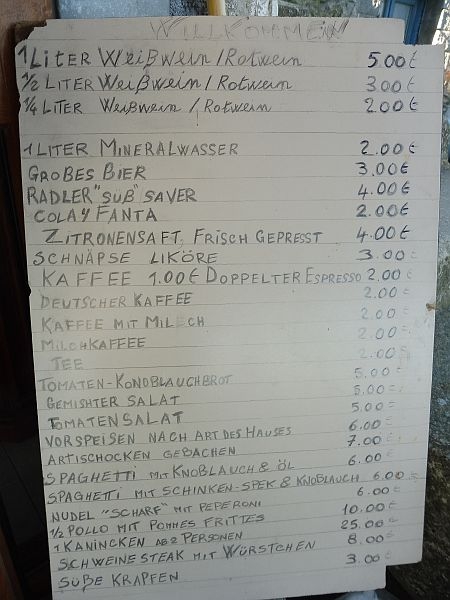 WILLKOMMEN
1 LITER Weißwein / Rotwein 5.00 €
1/2 LITER Weißwein / Rotwein 3.00 €
1/4 LITER Weißwein / Rotwein 2.00 €
1 LITER MINERALWASSER 2.00 €
GROßES BIER 3.00 €
RADLER "SÜß" SAVER 4.00 €
COLA Y FANTA 2.00 €
ZITRONENSAFT, FRISCH GEPRESST 4.00 €
SCHNÄPSE LIKÖRE 3.00 €
KAFFEE 1.00 € DOPPELTER ESPRESSO 2.00 €
DEUTSCHER KAFFEE 2.00 €
KAFFEE MIT MILECH 2.00 €
MILCHKAFFEE 2.00 €
TEE 2.00 €
TOMATEN-KONOBLAUCHBROT 5.00 €
GEMISHTER SALAT 5.00 €
TOMATENSALAT 5.00 €
VORSPEISEN NACH ART DES HAUSES 6.00 €
ARTISCHOCKEN GEBACHEN 7.00 €
SPAGHETTI MIT KNOßLAUCH & ÖL 6.00 €
SPAGHETTI MIT SCHINKEN-SPEK & KNOBLAUCH 6.00 €
NUDEL "SCHARF" MIT PEPERONI 6.00 €
1/2 POLLO MIT POMMES FRITTES 10.00 €
1 KANINCKEN AB 2 PERSONEN 25.00 €
SCHWEINESTEAK MIT WÜRSTCHEN 8.00 €
SÜßE KRAPFEN 3.00 €